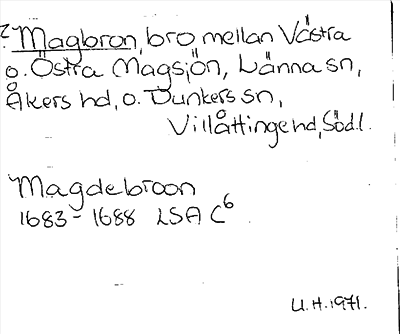 ? Magbron, bro mellan Västra
o. Östra Magsjön, Länna sn,
Åkers hd, o. Dunkers sn,
Villåttinge hd, Södl.
Magdebroon
1683-1688 LSA C6
U.H. 1971.